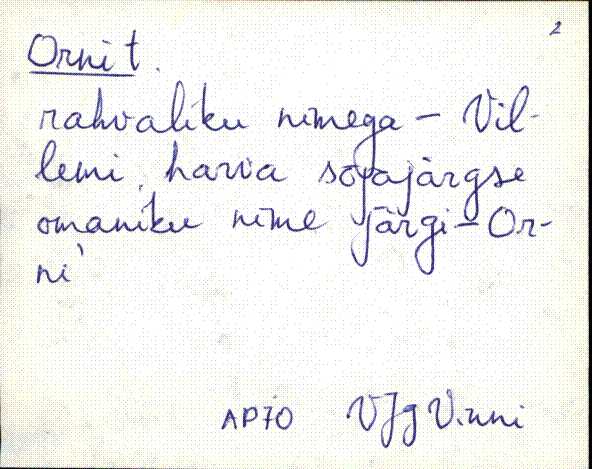 2
Orni t.
rahvaliku nimega – Vil-
lemi, harva sõjajärgse
omaniku nime järgi – Or-
ni
AP70 VJg Vinni